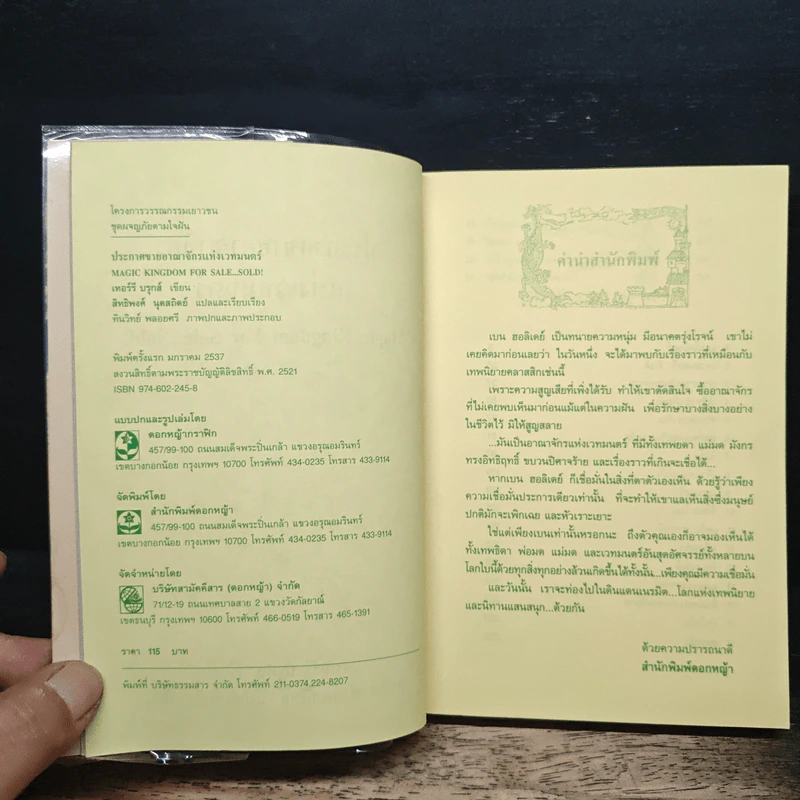 โครงการวรรณกรรมเยาวชน
ชุดผจญภัยตามใจฝัน
ประกาศขายอาณาจักรแห่งเวทมนตร์
MAGIC KINGDOM FOR SALE...SOLD!
เทอร์รี บรุกส์ เขียน
สิทธิพงศ์ นุตสถิตย์ แปลและเรียบเรียง
ทินวิทย์ พลอยศรี ภาพปกและภาพประกอบ
พิมพ์ครั้งแรก มกราคม 2537
สงวนสิทธิ์ตามพระราชบัญญัติลิขสิทธิ์ พ.ศ. 2521
ISBN 974-602-245-8
แบบปกและรูปเล่มโดย
ดอกหญ้ากราฟิก
457/99-100 ถนนสมเด็จพระปิ่นเกล้า แขวงอรุณอมรินทร์
เขตบางกอกน้อย กรุงเทพฯ 10700 โทรศัพท์ 434-0235 โทรสาร 433-9114
จัดพิมพ์โดย
สำนักพิมพ์ดอกหญ้า
457/99-100 ถนนสมเด็จพระปิ่นเกล้า แขวงอรุณอมรินทร์
เขตบางกอกน้อย กรุงเทพฯ 10700 โทรศัพท์ 434-0235 โทรสาร 433-9114
จัดจำหน่ายโดย
บริษัทสามัคคีสาร (ดอกหญ้า) จำกัด
71/12-19 ถนนเทศบาลสาย 2 แขวงวัดกัลยาณ์
เขตธนบุรี กรุงเทพฯ 10600 โทรศัพท์ 466-0519 โทรสาร 465-1391
ราคา 115 บาท
พิมพ์ที่ บริษัทธรรมสาร จำกัด โทรศัพท์ 211-0374,224-8207
คำนำสำนักพิมพ์
เบน ฮอลิเดย์ เป็นทนายความหนุ่ม มีอนาคตรุ่งโรจน์ เขาไม่
เคยคิดมาก่อนเลยว่า ในวันหนึ่ง จะได้มาพบกับเรื่องราวที่เหมือนกับ
เทพนิยายคลาสสิกเช่นนี้
เพราะความสูญเสียที่เพิ่งได้รับ ทำให้เขาตัดสินใจ ซื้ออาณาจักร
ที่ไม่เคยพบเห็นมาก่อนแม้แต่ในความฝัน เพื่อรักษาบางสิ่งบางอย่าง
ในชีวิตไว้ มิให้สูญสลาย
...มันเป็นอาณาจักรแห่งเวทมนตร์ ที่มีทั้งเทพยดา แม่มด มังกร
ทรงอิทธิฤทธิ์ ขบวนปิศาจร้าย และเรื่องราวที่เกินจะเชื่อได้...
หากเบน ฮอลิเดย์ ก็เชื่อมั่นในสิ่งที่ตาตัวเองเห็น ด้วยรู้ว่าเพียง
ความเชื่อมั่นประการเดียวเท่านั้น ที่จะทำให้เขาแลเห็นสิ่งซึ่งมนุษย์
ปกติมักจะเพิกเฉย และหัวเราะเยาะ
ใช่แต่เพียงเบนเท่านั้นหรอกนะ ถึงตัวคุณเองก็อาจมองเห็นได้
ทั้งเทพธิดา พ่อมด แม่มด และเวทมนตร์อันสุดอัศจรรย์ทั้งหลายบน
โลกใบนี้ด้วยทุกสิ่งทุกอย่างล้วนเกิดขึ้นได้ทั้งนั้น...เพียงคุณมีความเชื่อมั่น
และวันนั้น เราจะท่องไปในดินแดนเนรมิต...โลกแห่งเทพนิยาย
และนิทานแสนสนุก...ด้วยกัน
ด้วยความปรารถนาดี
สำนักพิมพ์ดอกหญ้า